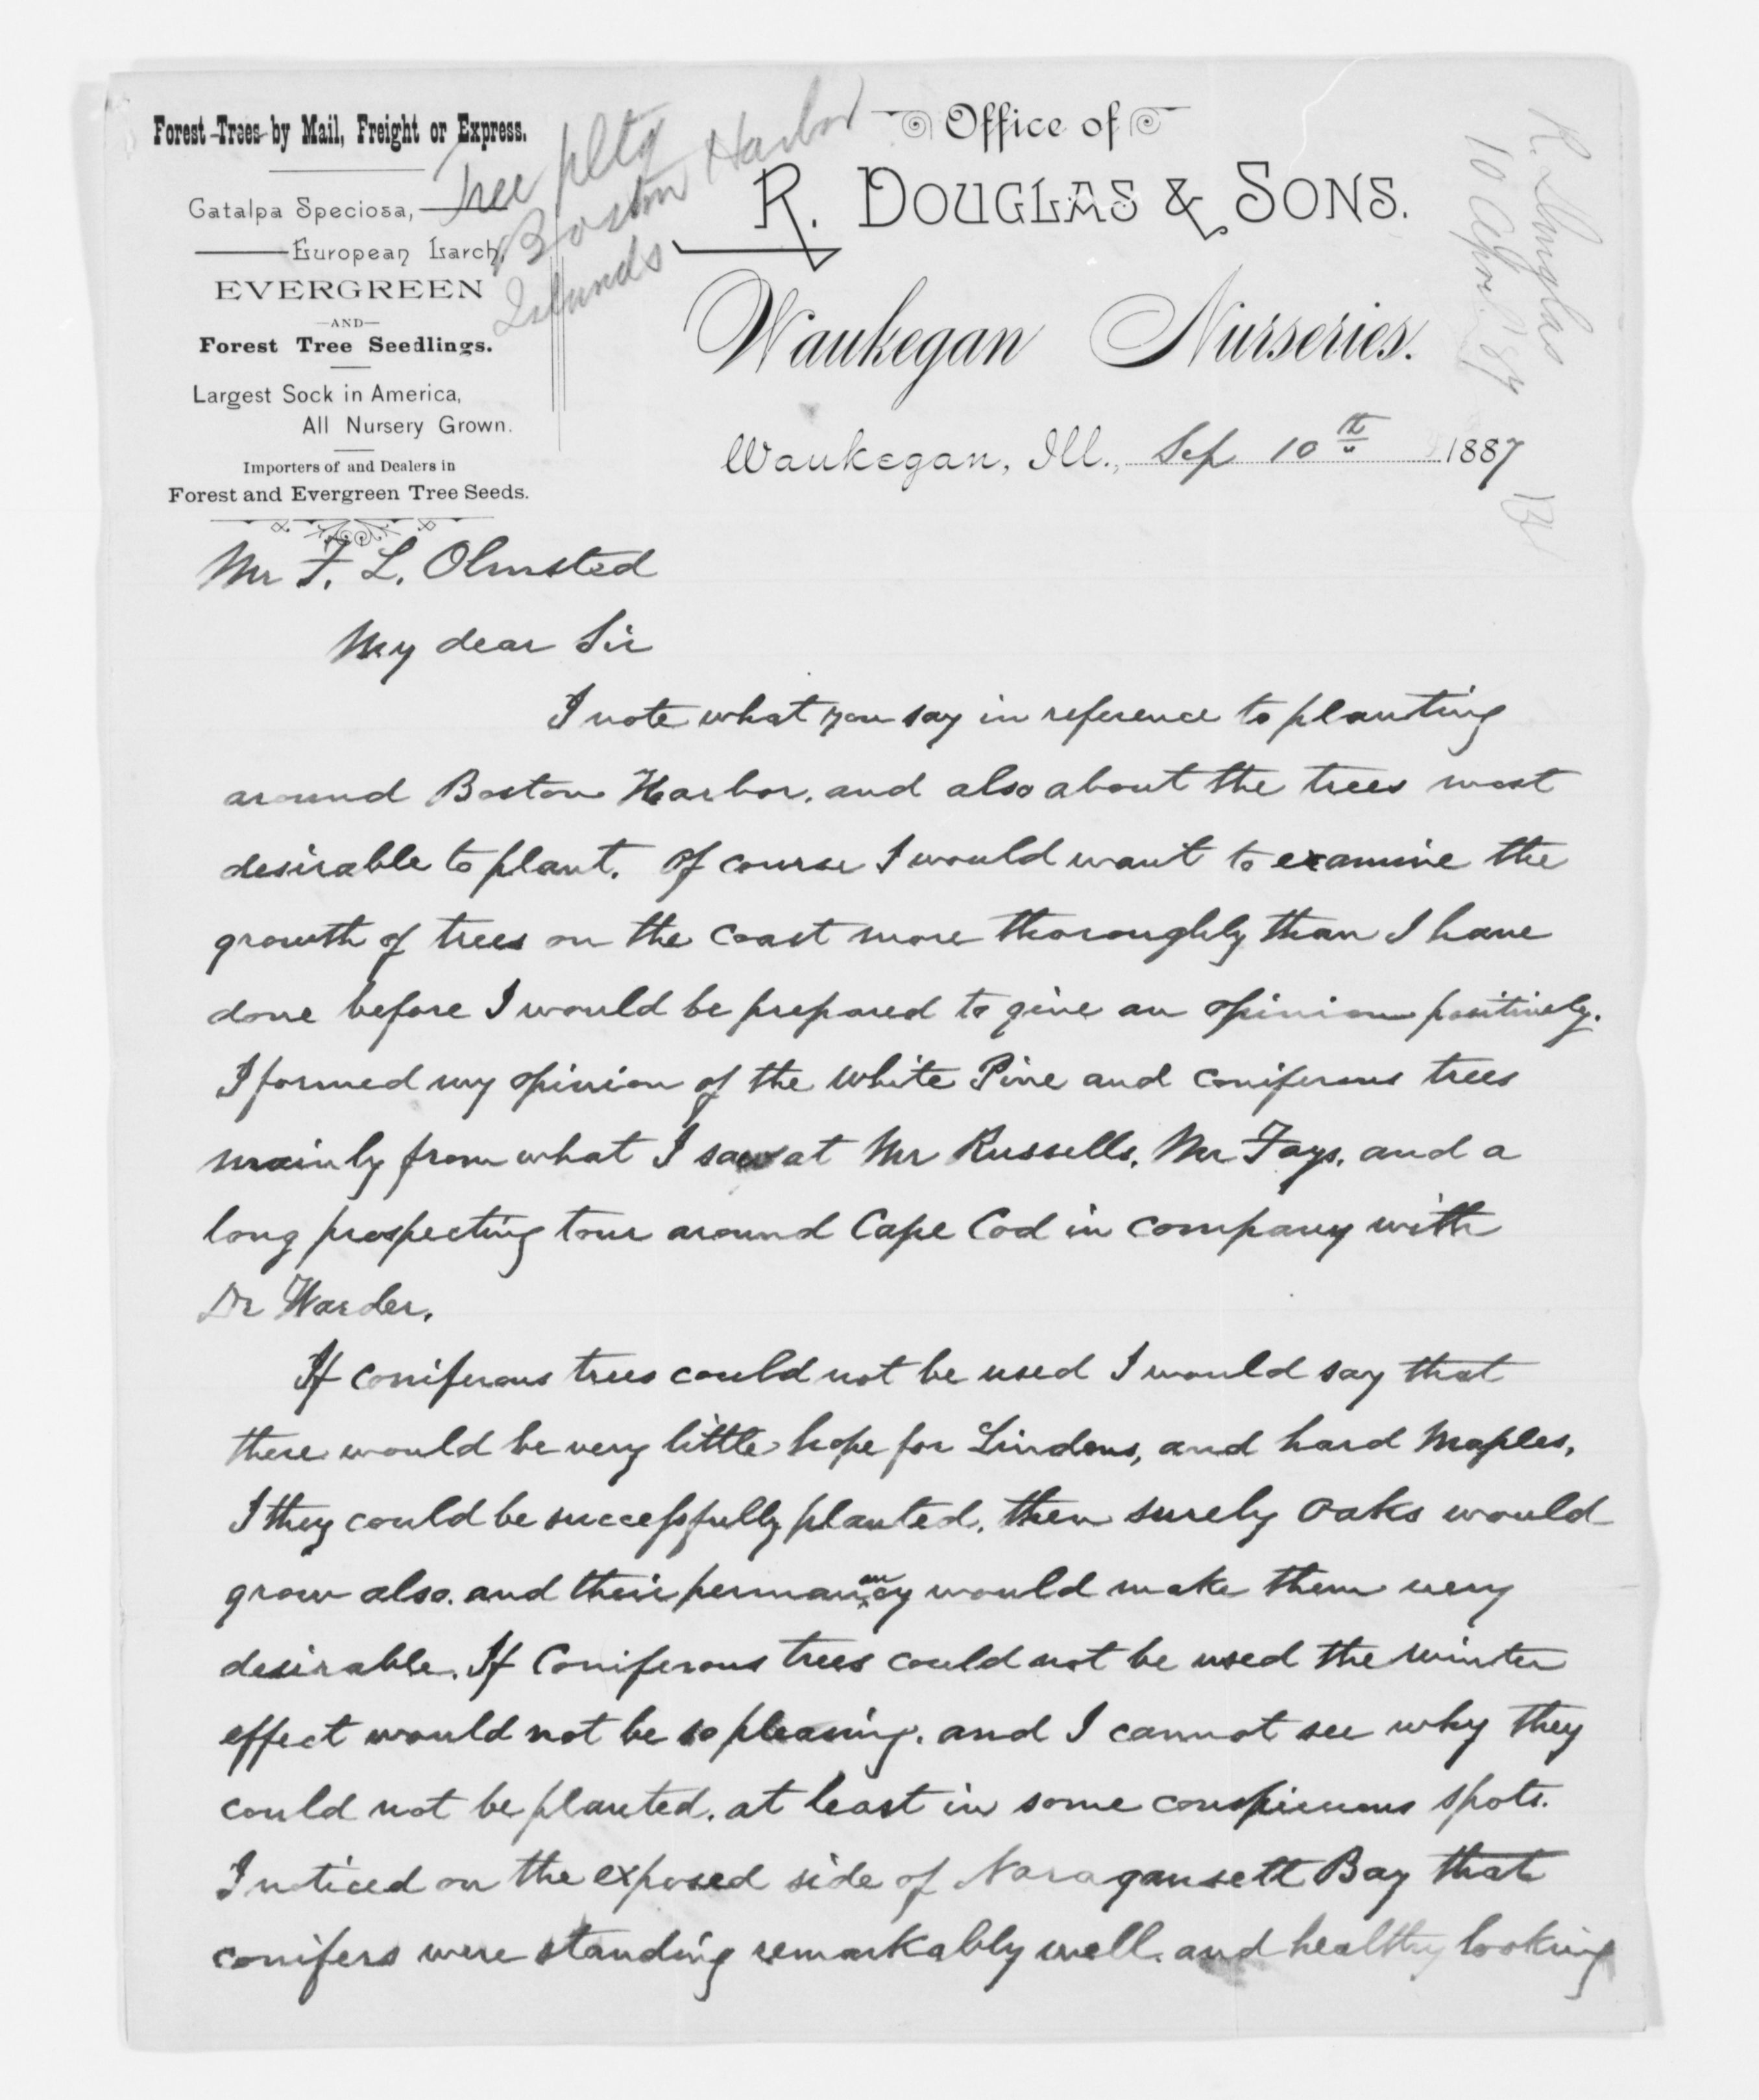 Forest Trees by Mail, Freight or Express.
Catalpa Speciosa,
European Larch,
EVERGREEN
—AND—
Forest Tree Seedlings.
Largest Sock in America,
All Nursery Grown.
Importers of and Dealers in
Forest and Evergreen Tree Seeds.
Tree pltg
Boston Harbor
Islands
Office of
R. DOUGLAS & SONS.
Waukegan Nurseries.
Waukegan, Ill., Sep 10th 1887
R. Douglas
10
Mr F. L. Olmsted
My dear Sir
I note what you say in reference to planting
around Boston Harbor, and also about the trees most
desirable to plant. Of course I would want to examine the
growth of trees on the coast more thoroughly than I have
done before I would be prepared to give an opinion positively.
I formed my opinion of the White Pine and coniferous trees
mainly from what I saw at Mr Russells, Mr Fays, and a
long prospecting tour around Cape Cod in company with
Dr Warder.
If coniferous trees could not be used I would say that
there would be very little hope for Lindens, and hard Maples,
I they could be successfully planted, then surely Oaks would
grow also, and their permanancy would make them very
desirable. If Coniferous trees could not be used the winter
effect would not be so pleasing, and I cannot see why they
could not be planted, at least in some conspicuous spots.
I noticed on the exposed side of Naragansett Bay that
conifers were standing remarkably well, and healthy looking